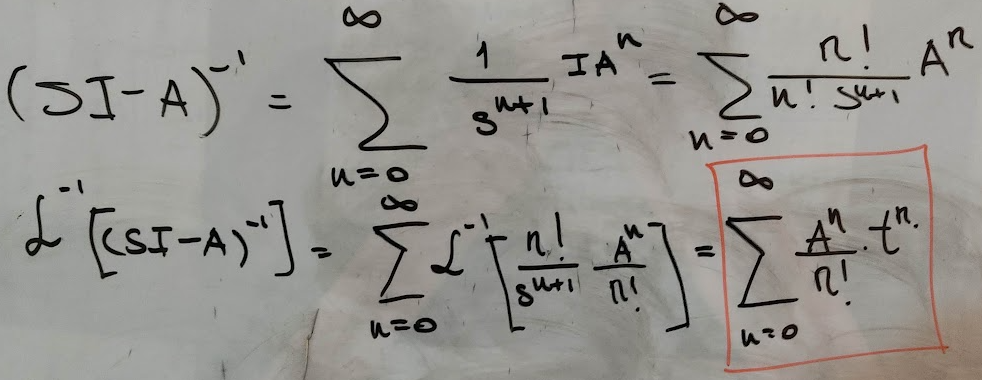 (SI-A)⁻¹ = ∑_{n=0}^{∞} 1/s^{n+1} IA^n = ∑_{n=0}^{∞} n!/(n! s^{n+1}) A^n
ℒ⁻¹[(SI-A)⁻¹] = ∑_{n=0}^{∞} ℒ⁻¹[n!/s^{n+1} A^n/n!] = ∑_{n=0}^{∞} A^n/n! · t^n.